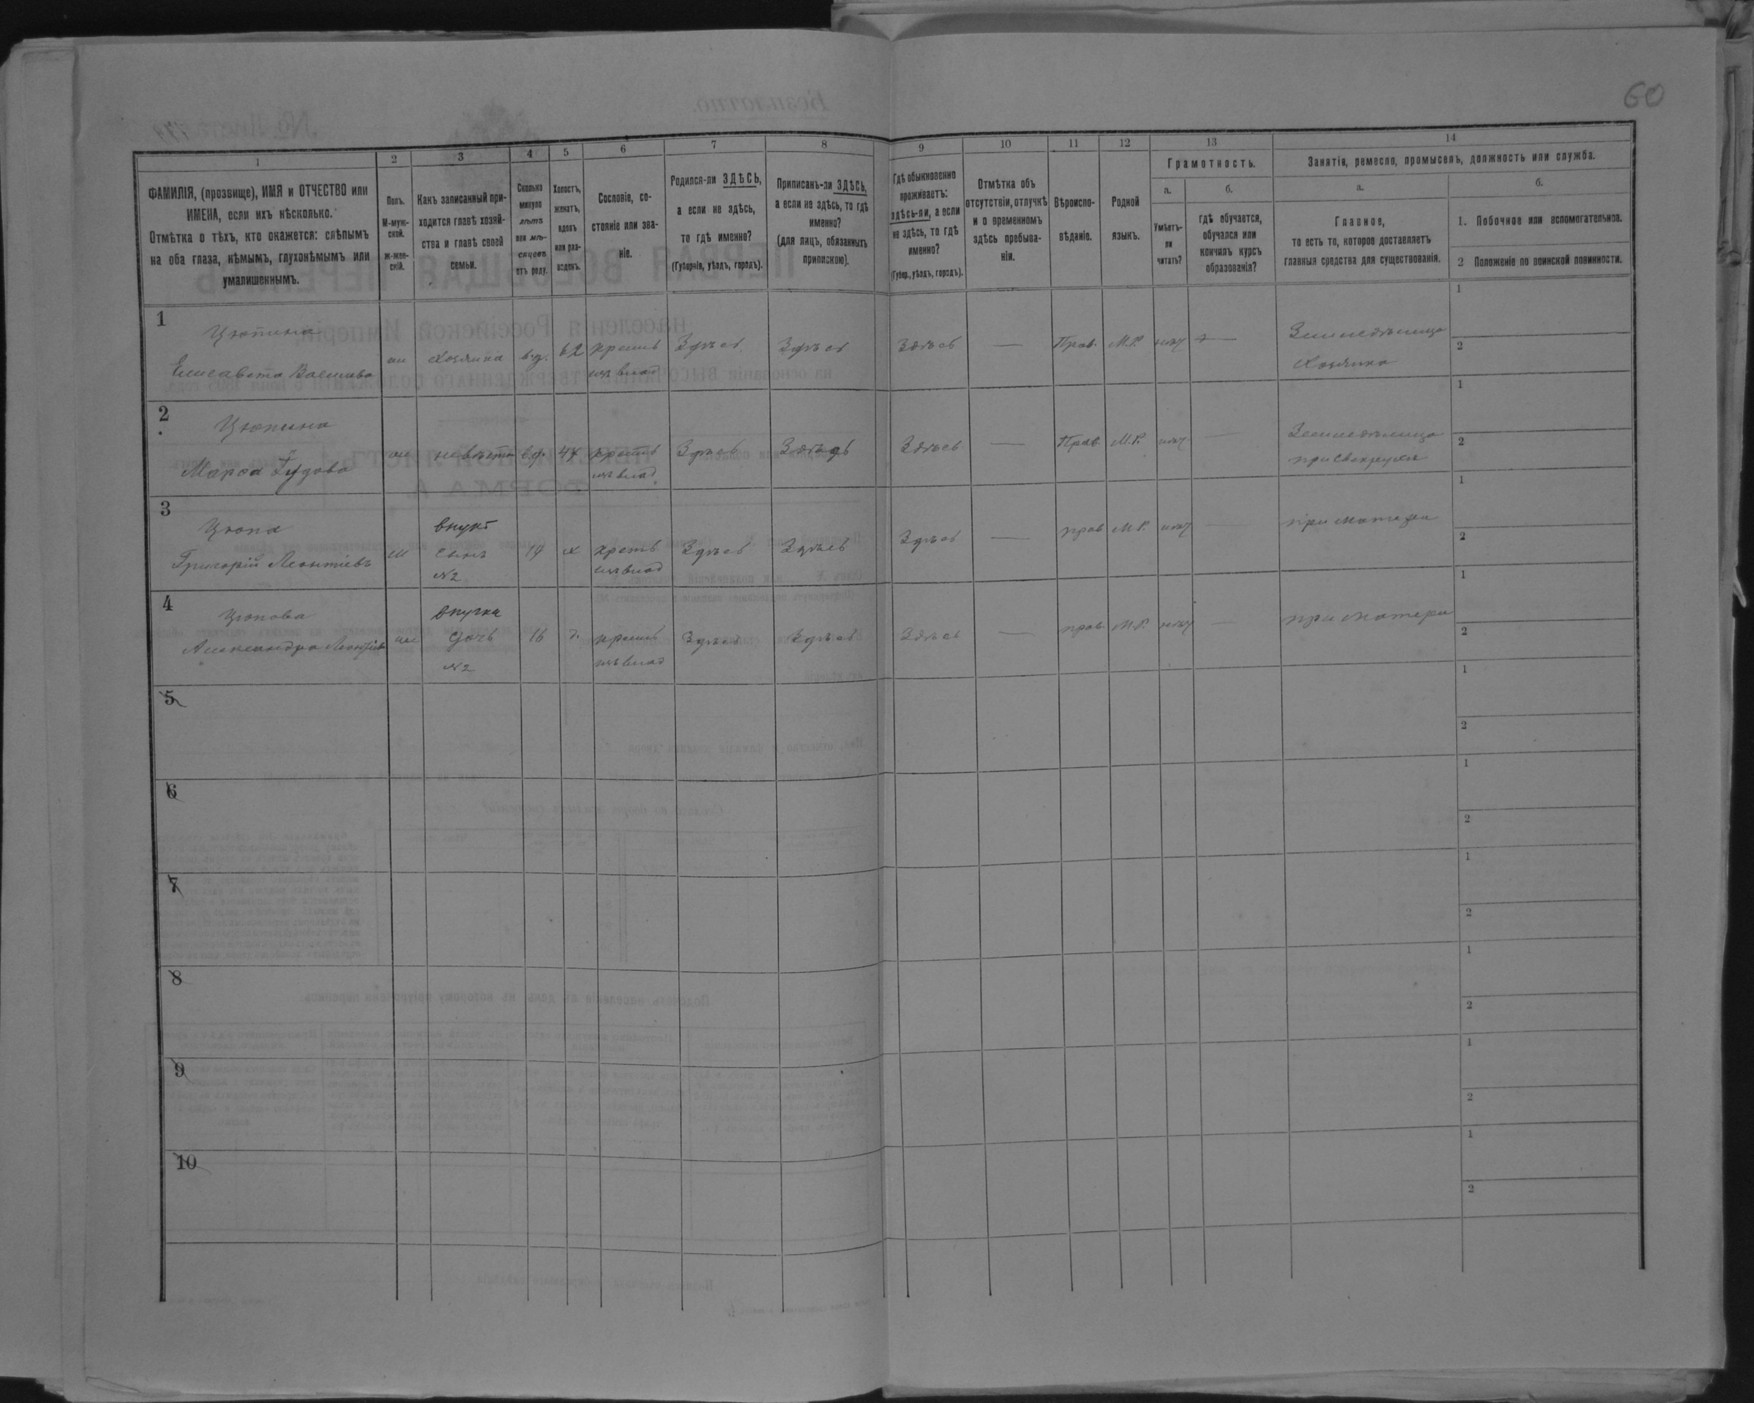 60
1
2
3
4
5
6
7
8
9
10
11
12
13
14
ФАМИЛІЯ, (прозвище), ИМЯ и ОТЧЕСТВО или
ИМЕНА, если ихъ нѣсколько.
Отмѣтка о тѣхъ, кто окажется: слѣпымъ
на оба глаза, нѣмымъ, глухонѣмымъ или
умалишеннымъ.
Полъ.
М-муж-
ской.
Ж-жен-
скій.
Какъ записанный при-
ходится главѣ хозяй-
ства и главѣ своей
семьи.
Сколько
минуло
лѣтъ
или мѣ-
сяцевъ
отъ роду.
Холостъ,
женатъ,
вдовъ
или раз-
веденъ.
Сословіе, со-
стояніе или зва-
ніе.
Родился-ли ЗДѢСЬ,
а если не здѣсь,
то гдѣ именно?
(Губернія, уѣздъ, городъ).
Приписанъ-ли ЗДѢСЬ,
а если не здѣсь, то гдѣ
именно?
(для лицъ, обязанныхъ
припиской).
Гдѣ обыкновенно
проживаетъ:
здѣсь-ли, а если
не здѣсь, то гдѣ
именно?
(Губер., уѣздъ, городъ).
Отмѣтка объ
отсутствіи, отлучкѣ
и о временномъ
здѣсь пребыва-
ніи.
Вѣроиспо-
вѣданіе.
Родной
языкъ.
Грамотность.
а.
б.
Умѣетъ-
ли
читать?
гдѣ обучается,
обучался или
кончилъ курсъ
образованія?
Занятія, ремесло, промыселъ, должность или служба.
а.
б.
Главное,
то есть то, которое доставляетъ
главныя средства для существованія.
1. Побочное или вспомогательное.
2 Положеніе по воинской повинности.
1
Цюпина
Елисавета
жи хозяйка вд. 62 крестъ Здѣсь Здѣсь Здѣсь — Прав. М.Р. нѣтъ —
Земледѣлица
Хозяйка
1
2
2
Цюпина
Марѳа
невѣстка вд. крестъ Здѣсь Здѣсь Здѣсь — Прав. М.Р. нѣтъ —
Земледѣлица
при свекрухѣ
1
2
3
Цюпа
Григорій Леонтіевъ
м
внукъ
сынъ
№2
19 х крестъ Здѣсь Здѣсь Здѣсь — прав М.Р. нѣтъ —
при матери
1
2
4
Цюпова
Александра Леонтіев
внучка
дочь
№2
16 д. крестъ Здѣсь Здѣсь Здѣсь — прав М.Р. нѣтъ —
при матери
1
2
5
1
2
6
1
2
7
1
2
8
1
2
9
1
2
10
1
2